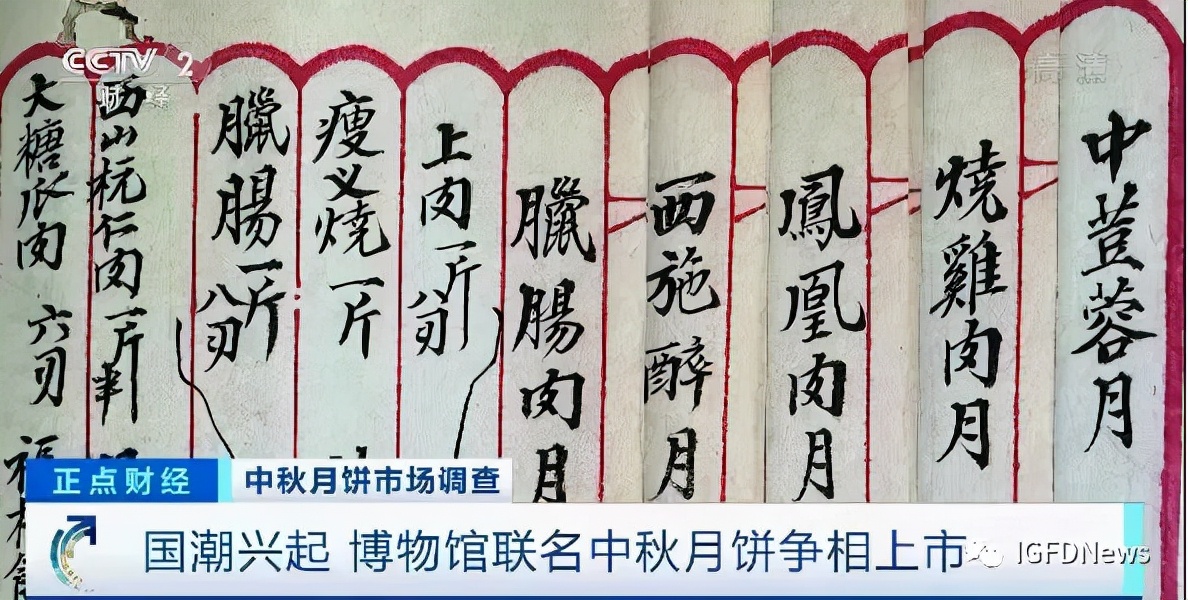 CCTV 2
财经
高清
中荳蓉月
燒雞肉月
鳳凰肉月
西施醉月
臘腸肉月
上肉一斤八刃
瘦义燒一斤
臘腸一斤八刃
西山杬仁肉一斤半
大糖瓜肉 六刃
正点财经
中秋月饼市场调查
国潮兴起 博物馆联名中秋月饼争相上市
IGFDNews